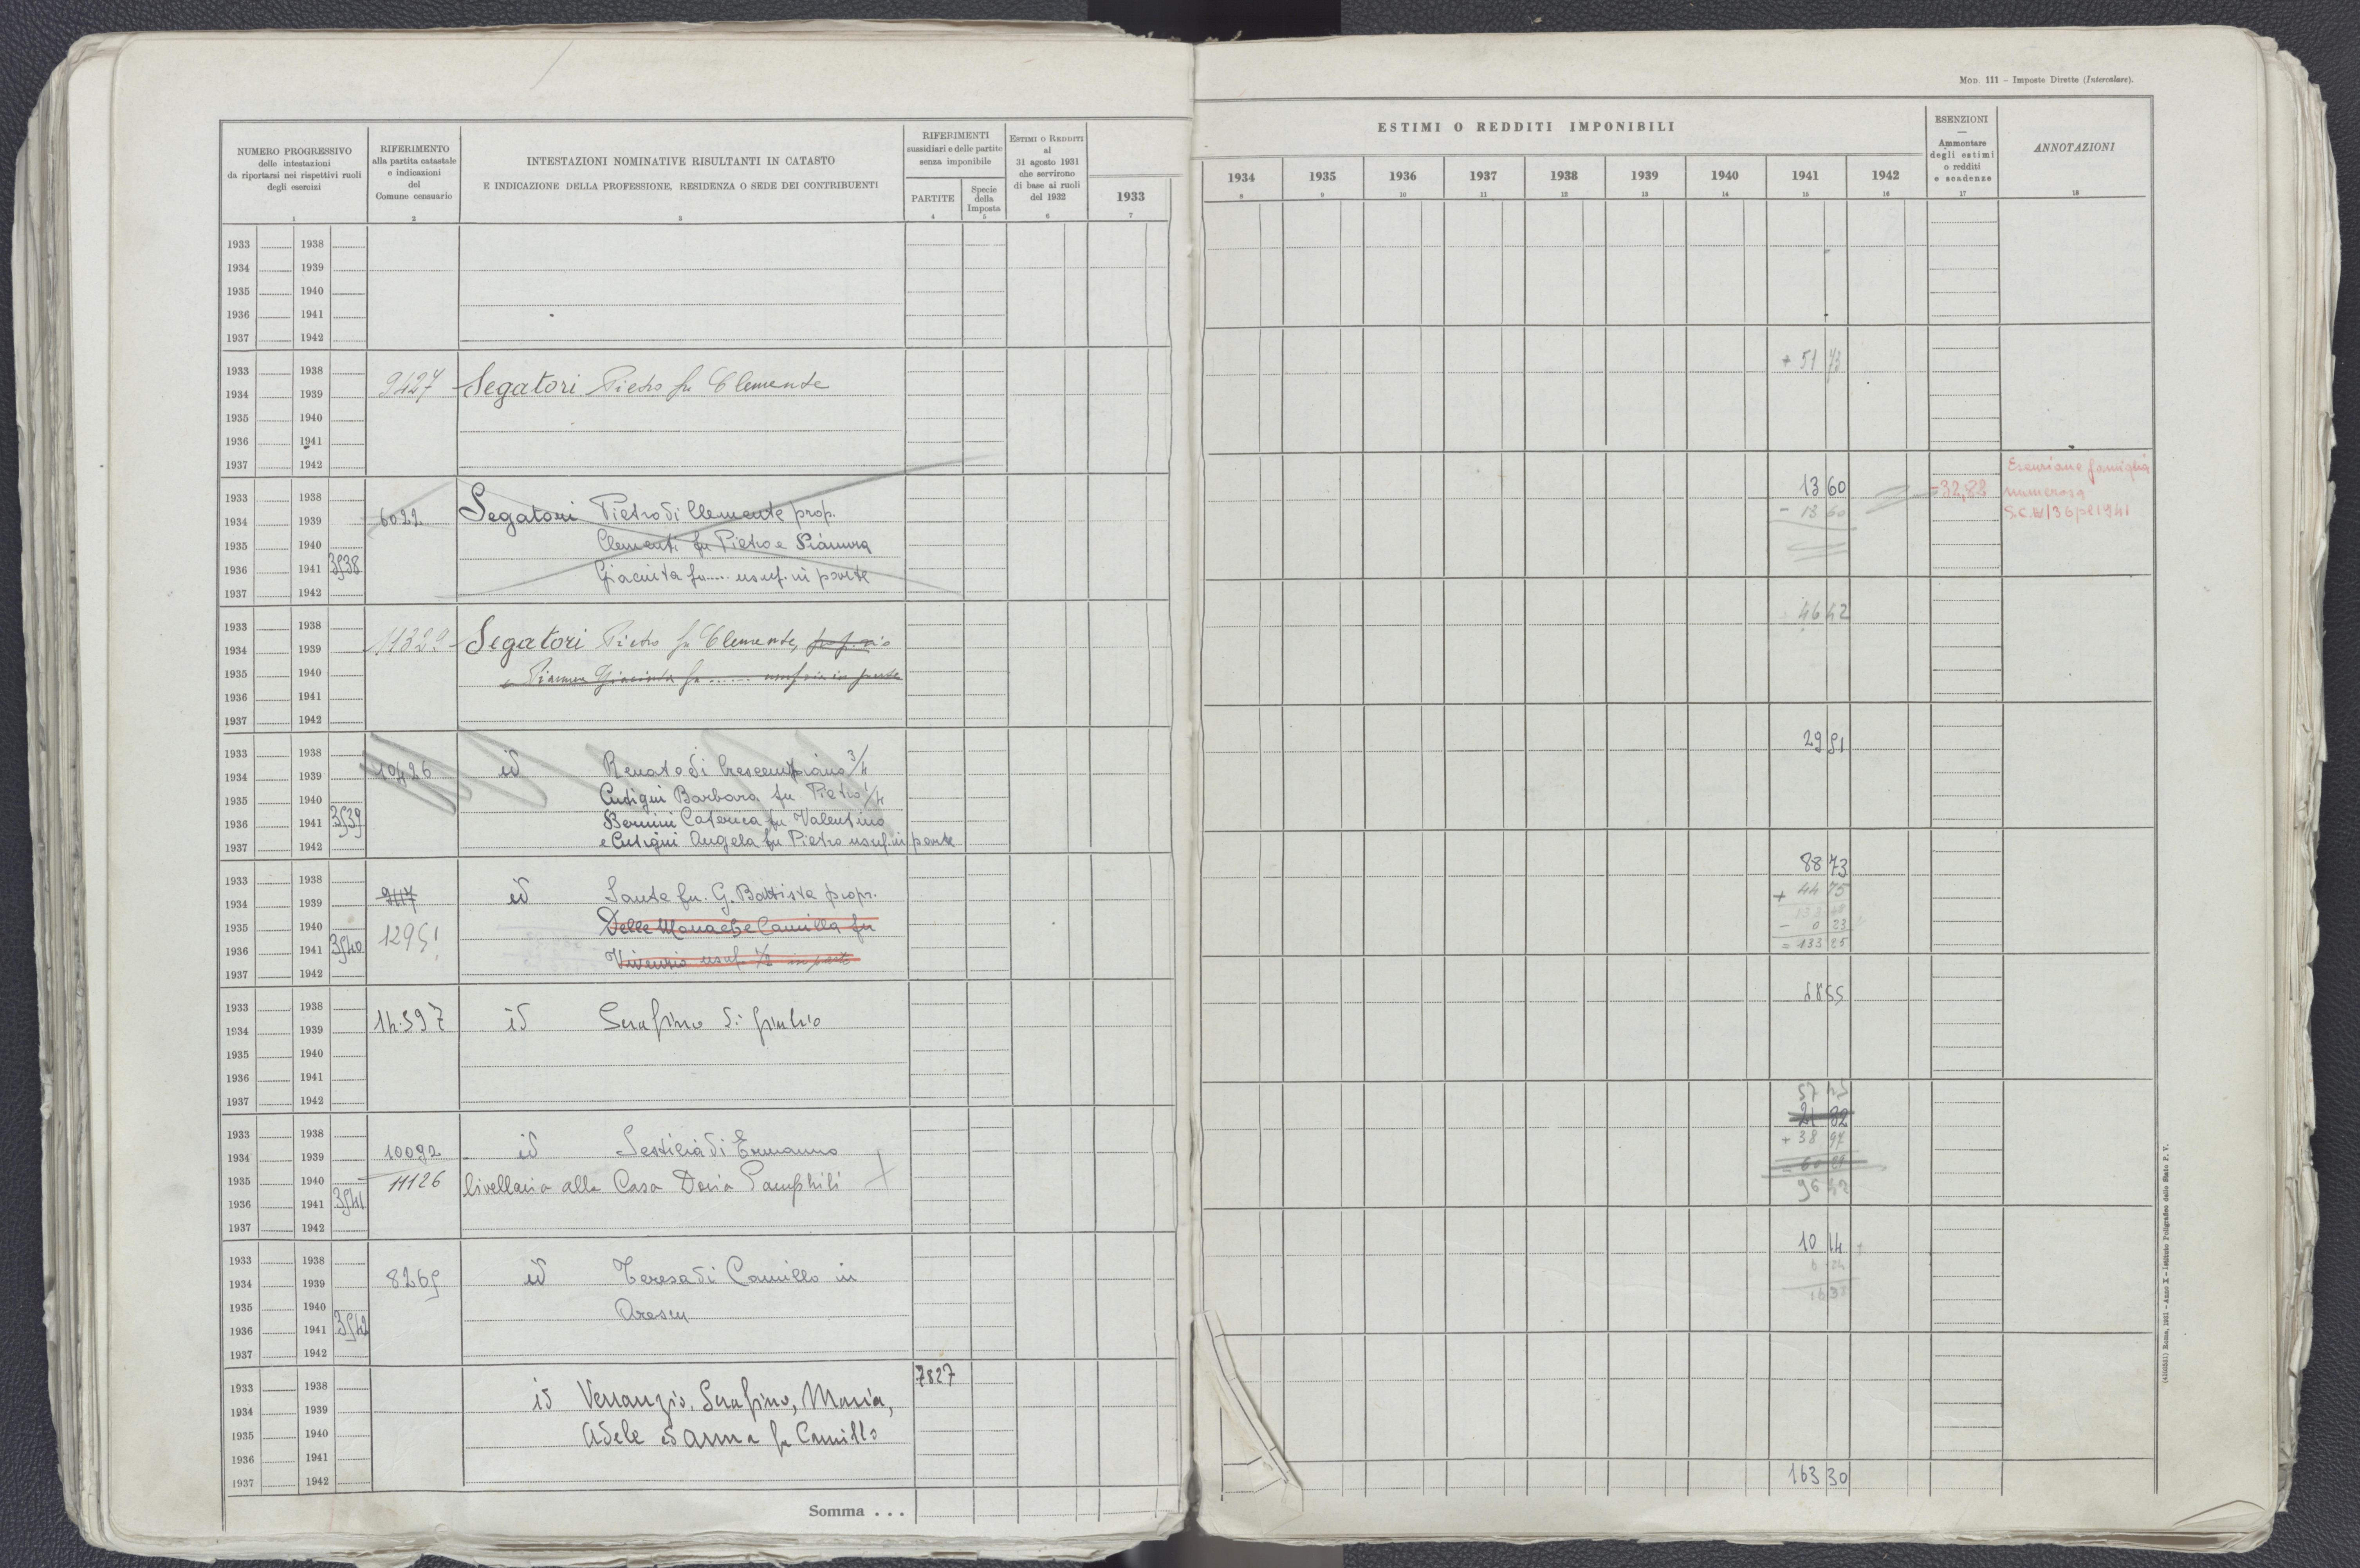 Mod. 111 - Imposte Dirette (Intercalare).
NUMERO PROGRESSIVO
delle intestazioni
da riportarsi nei rispettivi ruoli
degli esercizi
1
RIFERIMENTO
alla partita catastale
e indicazioni
del
Comune censuario
2
INTESTAZIONI NOMINATIVE RISULTANTI IN CATASTO
E INDICAZIONE DELLA PROFESSIONE, RESIDENZA O SEDE DEI CONTRIBUENTI
3
RIFERIMENTI
sussidiari e delle partite
senza imponibile
PARTITE
4
Specie
della
Imposta
5
ESTIMI O REDDITI
al
31 agosto 1931
che servirono
di base ai ruoli
del 1932
6
1933
7
ESTIMI O REDDITI IMPONIBILI
1934 1935 1936 1937 1938 1939 1940 1941 1942
8 9 10 11 12 13 14 15 16
ESENZIONI
—
Ammontare
degli estimi
o redditi
e scadenze
17
ANNOTAZIONI
18
1933 1938
1934 1939
1935 1940
1936 1941
1937 1942
1933 1938 + 51
1934 1939 9427 Segatori Pietro fu Clemente
1935 1940
1936 1941
1937 1942
Esenzione famiglia
1933 1938 13 60 -32,82 numerosa
1934 1939 6022 Segatori Pietro di Clemente prop. - 13 60
1935 1940 Clementi fu Pietro e
1936 1941 3938 Giacinta fu..... usuf. in parte
1937 1942
1933 1938 46 42
1934 1939 Segatori Pietro fu Clemente,
1935 1940 Giacinta fu ......
1936 1941
1937 1942
1933 1938 29 91
1934 1939 10426 id Renato di Crescenziano 3/4
1935 1940 Cutigni Barbara fu Pietro 1/4
1936 1941 3939 Bernini Caterina fu Valentino
1937 1942 e Cutigni Angela fu Pietro usuf. in parte
1933 1938 88 73
1934 1939 9117 id Sante fu G. Battista propr. + 44 75
1935 1940 12951 Delle Monache Camilla fu - 0 23
1936 1941 3940 Vivenzio usuf. 1/2 in parte = 133 25
1937 1942
1933 1938
1934 1939 14.597 id Serafino di Giulio
1935 1940
1936 1941
1937 1942
1933 1938 21 82
1934 1939 10092 id Sestilia di Ermanno + 38 97
1935 1940 11126 livellaria alla Casa Doria Pamphili
1936 1941 3941 96 42
1937 1942
1933 1938 10 14
1934 1939 8269 id Teresa di Camillo in
1935 1940
1936 1941 3942
1937 1942
7827
1933 1938 id Venanzio, Serafino, Maria,
1934 1939
1935 1940 Adele ed Anna fu Camillo
1936 1941
1937 1942 163 30
Somma . . .
(4100531) Roma, 1931 - Anno X - Istituto Poligrafico dello Stato P. V.